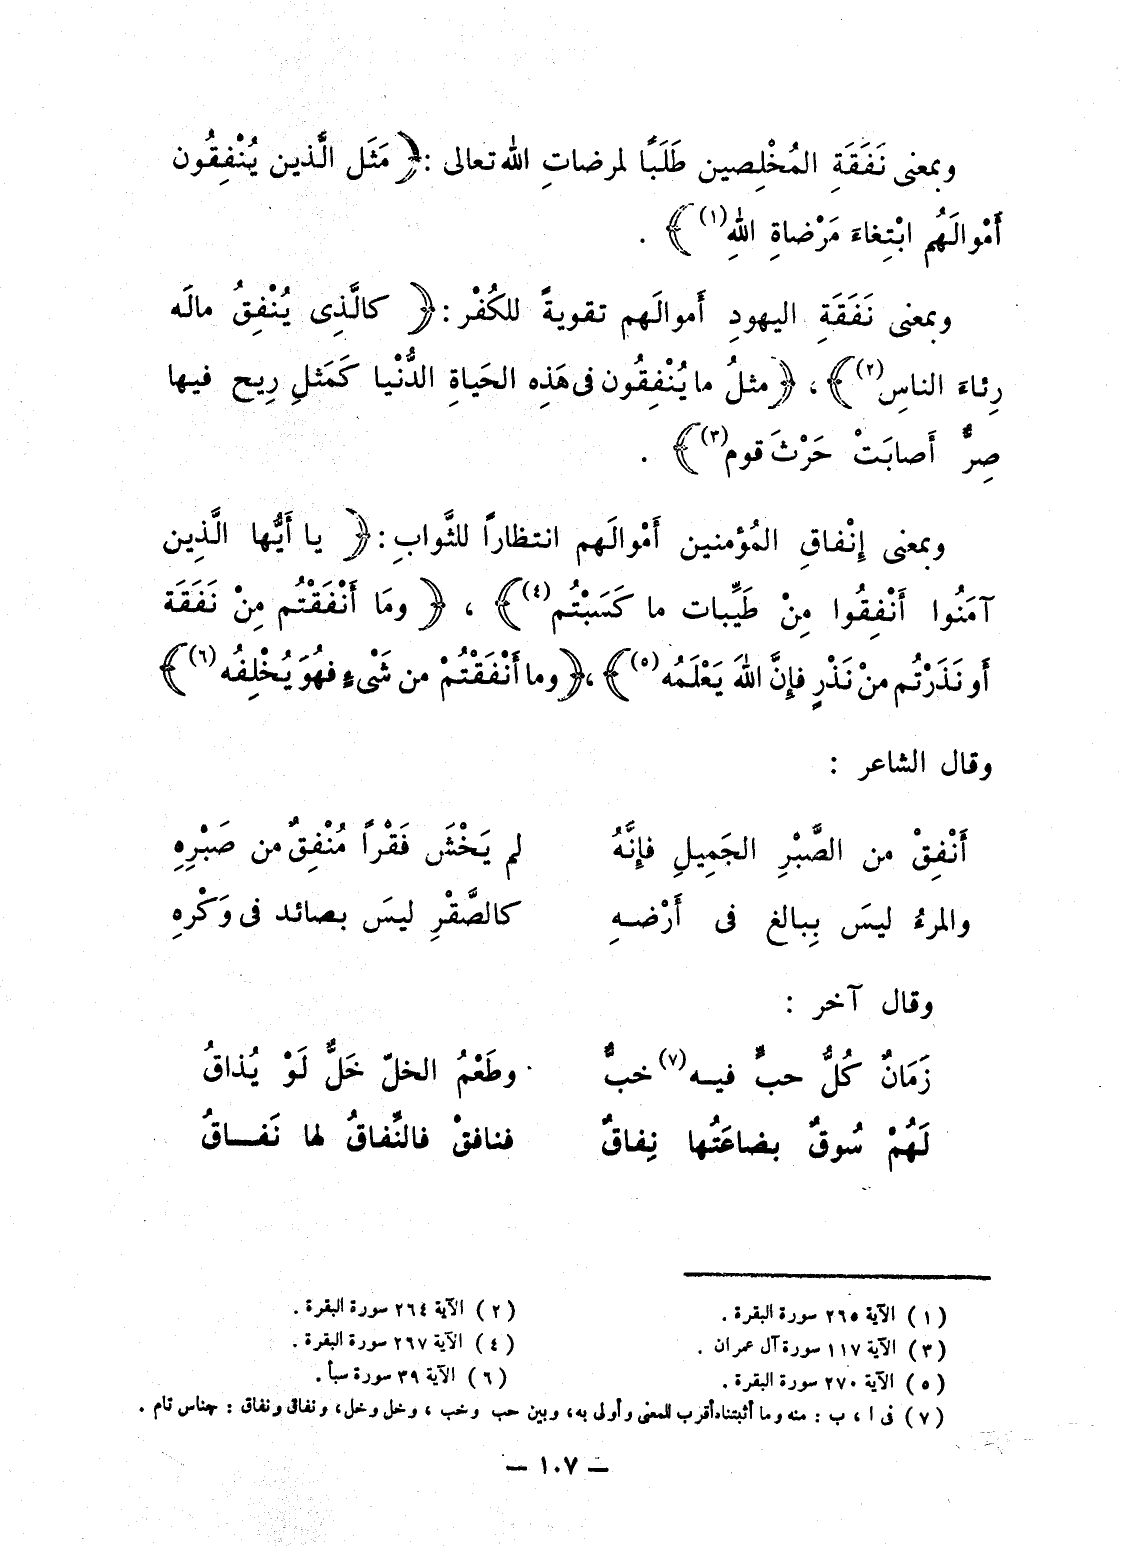 وبمعنى نَفَقَةِ المُخْلِصين طَلَبًا لمرضاتِ الله تعالى : ﴿ مَثَل الَّذين يُنْفِقُون
أَمْوالَهُم ابْتِغاءَ مَرْضاةِ اللهِ(١) ﴾ .
وبمعنى نَفَقَةِ اليهودِ أَموالَهم تقويةً للكُفْر : ﴿ كالَّذِى يُنْفِقُ مالَه
رِئاءَ الناسِ(٢) ﴾ ، ﴿ مثلُ ما يُنْفِقُون فى هَذِه الحَياةِ الدُّنْيا كَمَثلِ رِيح فيها
صِرٌّ أَصابَتْ حَرْثَ قوم(٣) ﴾ .
وبمعنى إِنْفاقِ المُؤمنين أَمْوالَهم انتظاراً للثَّوابِ : ﴿ يا أَيُّها الَّذِين
آمَنُوا أَنْفِقُوا مِنْ طَيِّبات ما كَسَبْتُم(٤) ﴾ ، ﴿ ومَا أَنْفَقْتُم مِنْ نَفَقَة
أَو نَذَرْتُم منْ نَذْرٍ فإِنَّ اللهَ يَعْلَمُه(٥) ﴾ ، ﴿ وما أَنْفَقْتُمْ من شَىْءٍ فهُوَ يُخْلِفُه(٦) ﴾
وقال الشاعر :
أَنْفِقْ من الصَّبْرِ الجَمِيلِ فإِنَّهُ لم يَخْشَ فَقْراً مُنْفِقٌ من صَبْرِهِ
والمرءُ ليسَ بِبالغ فى أَرْضــهِ كالصَّقْرِ ليسَ بصائد فى وَكْرهِ
وقال آخر :
زَمَانٌ كُلُّ حبٍّ فيــه(٧) خبٌّ وطَعْمُ الخلّ خَلٌّ لَوْ يُذاقُ
لَهُمْ سُوقٌ بضاعَتُها نِفاقٌ فنافقْ فالنِّفاقُ لها نَفـــاقُ
(١) الآية ٢٦٥ سورة البقرة . (٢) الآية ٢٦٤ سورة البقرة .
(٣) الآية ١١٧ سورة آل عمران . (٤) الآية ٢٦٧ سورة البقرة .
(٥) الآية ٢٧٠ سورة البقرة . (٦) الآية ٣٩ سورة سبأ .
(٧) فى ا ، ب : منه وما أثبتناه أقرب للمعنى وأولى به، وبين حب وخب ، وخل وخل، ونفاق ونفاق : جناس تام .
— ١٠٧ —